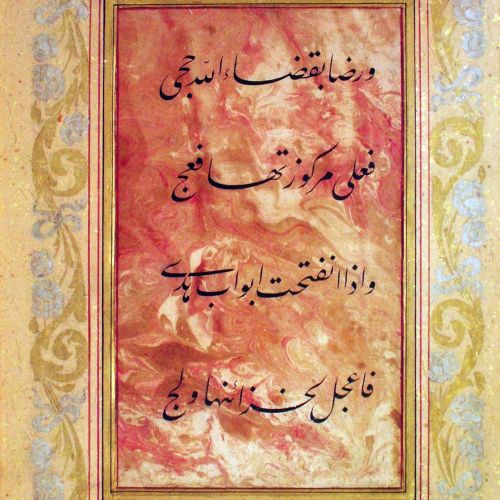 ورضا بقضاء الله حجى
فعلى مركوزتها فعج
واذا انفتحت ابواب هدى
فاعجل لخزائنها ولج